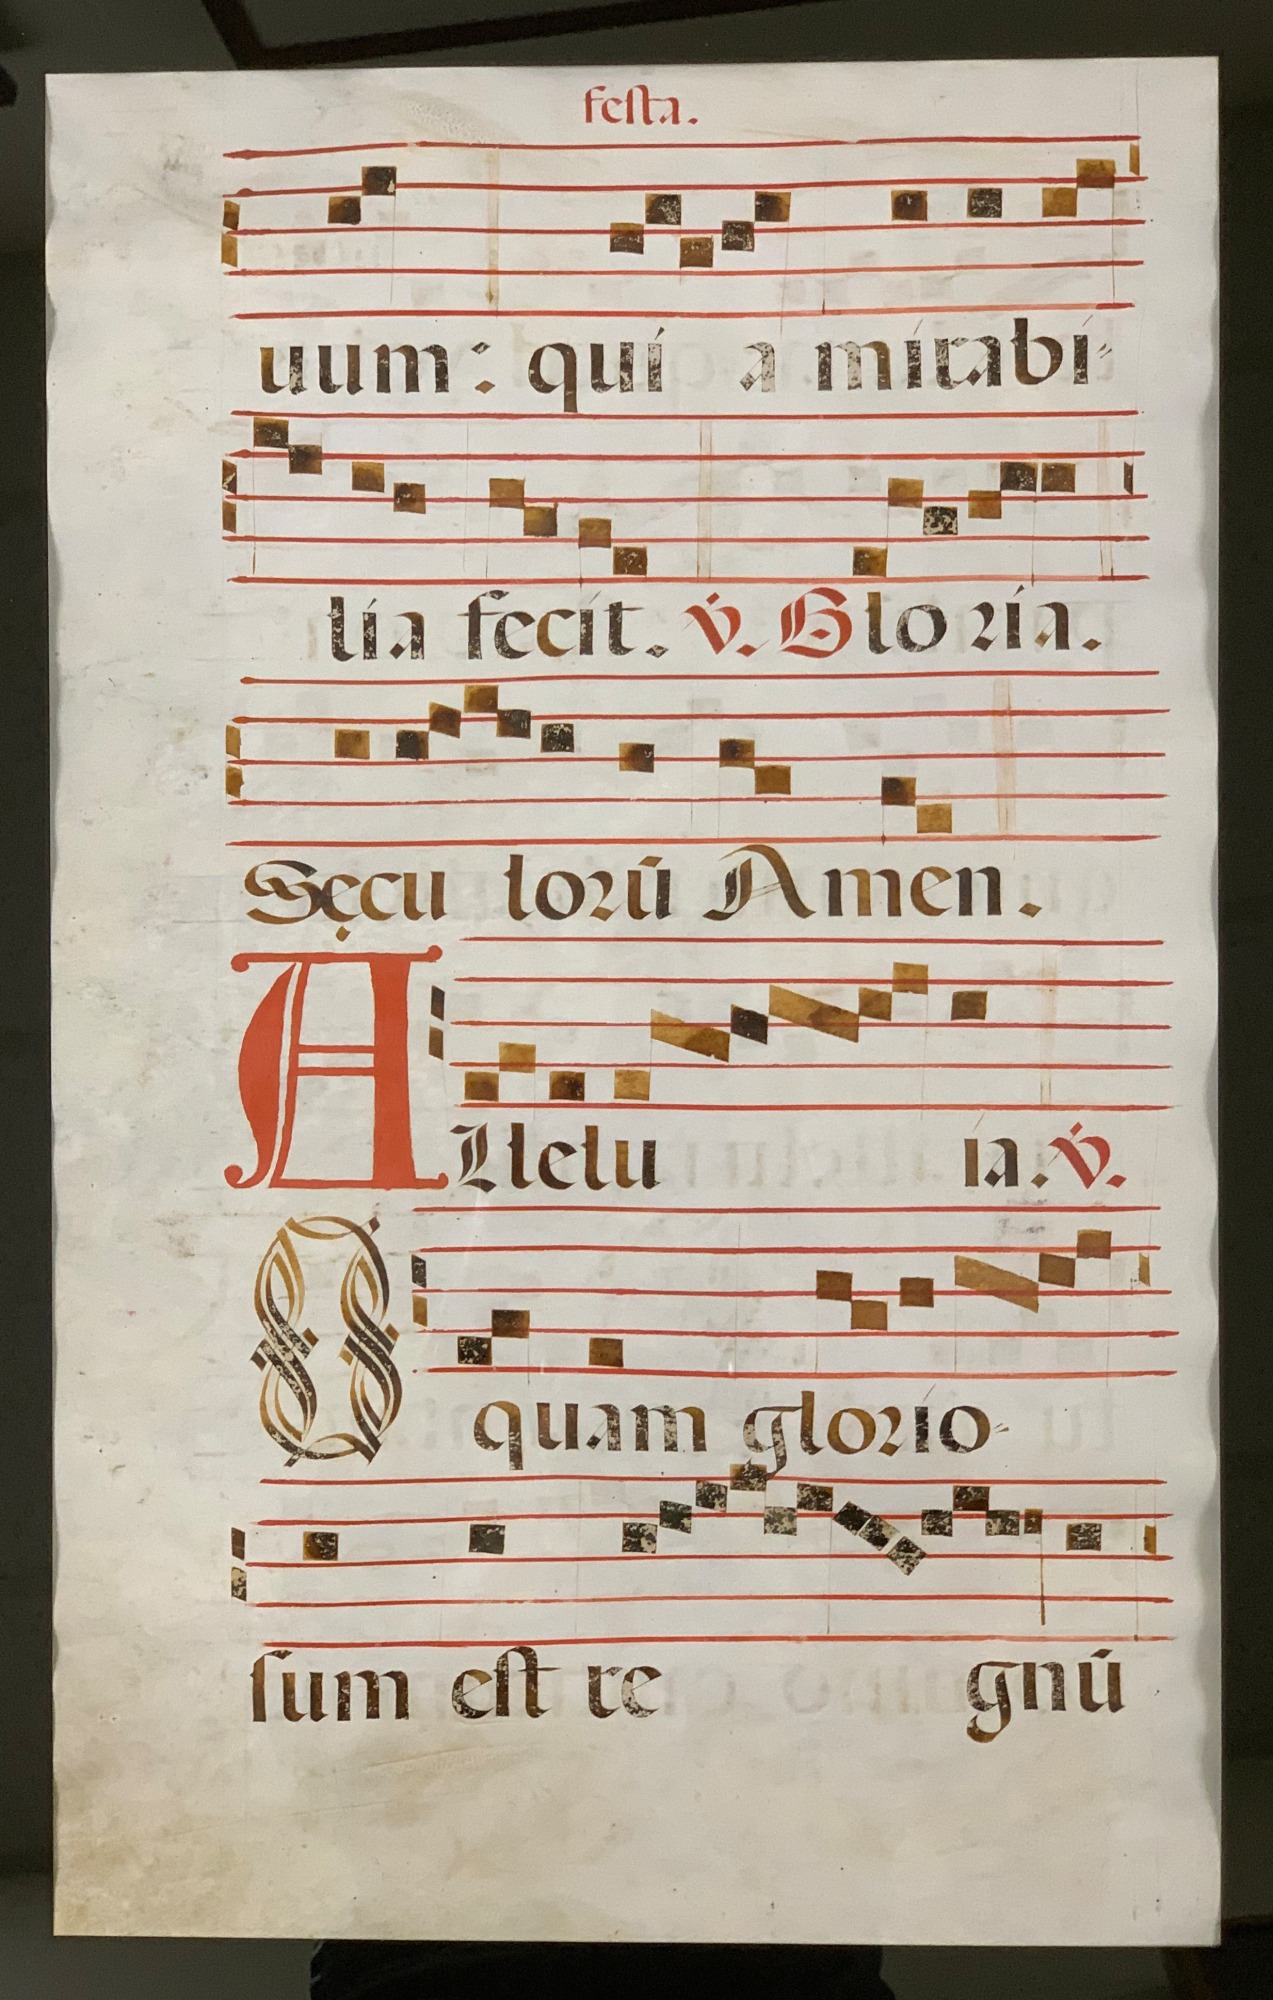 festa.
uum: qui a mirabi-
lia fecit. v. Gloria.
Sęcu lorū Amen.
ALlelu ia. v.
O quam glorio-
sum est re gnū